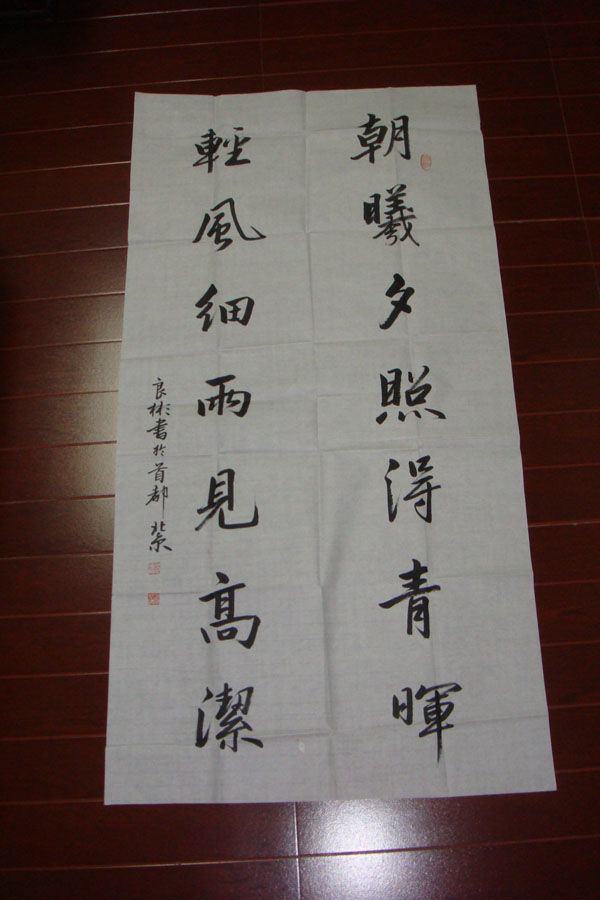 朝曦夕照得青暉
輕風細雨見高潔
良彬書於首都北京